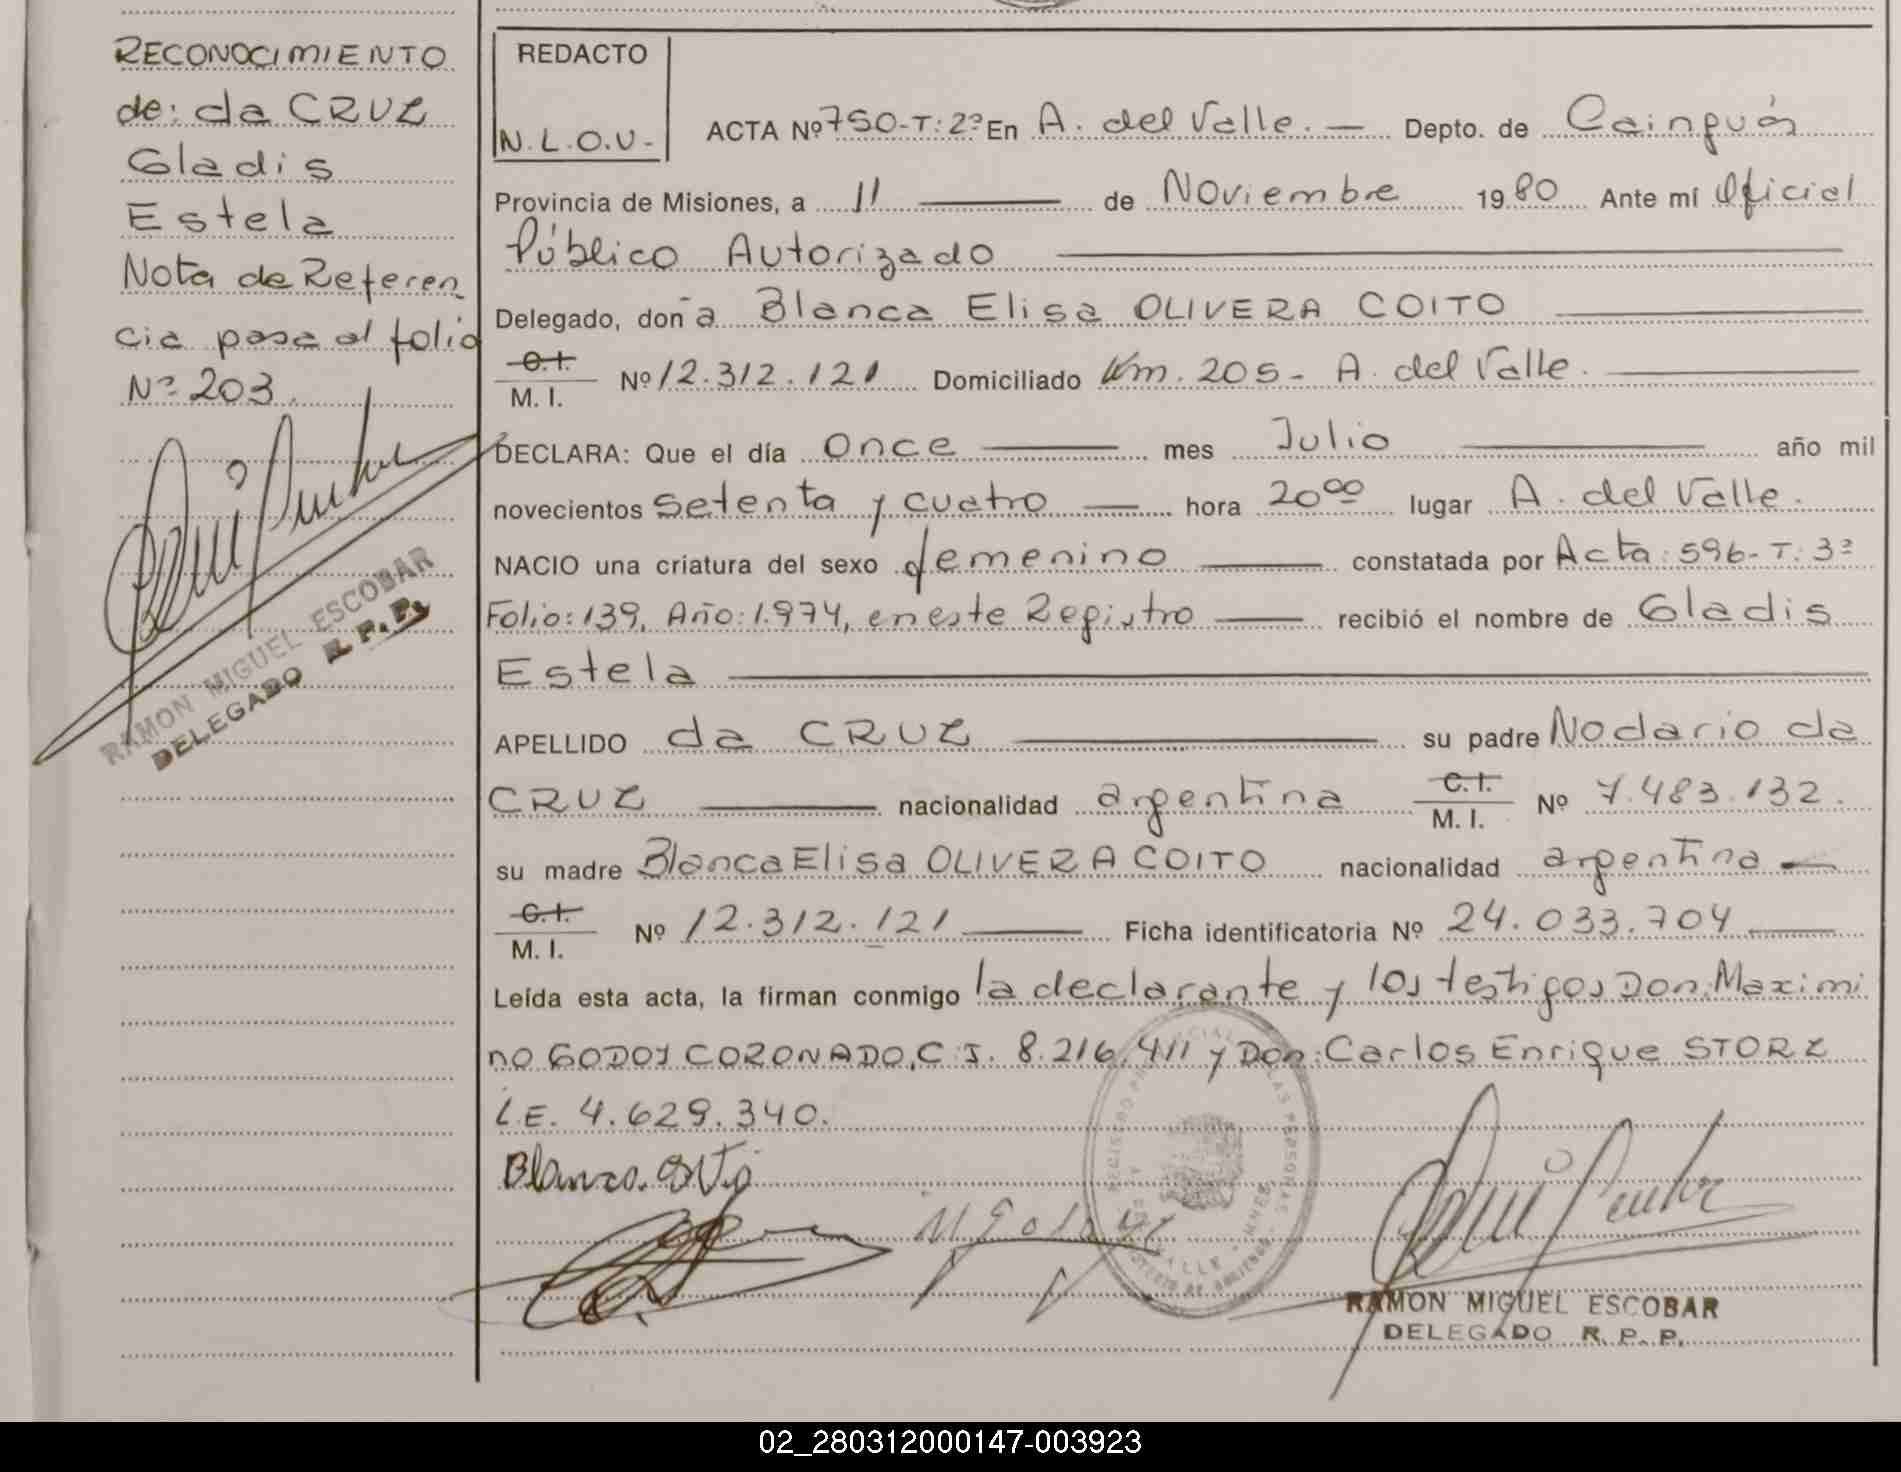 RECONOCIMIENTO
de: da CRUZ
Gladis
Estela
Nota de Referen_
cia pasa al folio
Nº 203.
RAMON MIGUEL ESCOBAR
DELEGADO R. P. P.
REDACTO
N.L.O.V.-
ACTA Nº 750-T: 2º En A. del Valle. — Depto. de Cainguás
Provincia de Misiones, a 11 — de Noviembre 1980 Ante mí Oficial
Público Autorizado —
Delegado, doña Blanca Elisa OLIVERA COITO —
C.I.
M. I. Nº 12.312.121 Domiciliado Km. 205- A. del Valle. —
DECLARA: Que el día once — mes Julio — año mil
novecientos setenta y cuatro — hora 20⁰⁰ lugar A. del Valle.
NACIO una criatura del sexo femenino — constatada por Acta: 596- T: 3º
Folio: 139, Año: 1.974, en este Registro — recibió el nombre de Gladis
Estela —
APELLIDO da CRUZ — su padre Nodario da
CRUZ — nacionalidad argentina C.I.
M. I. Nº 7.483.132.
su madre Blanca Elisa OLIVERA COITO nacionalidad argentina —
C.I.
M. I. Nº 12.312.121 — Ficha identificatoria Nº 24.033.704 —
Leída esta acta, la firman conmigo la declarante y los testigos Don: Maximi
no GODOY CORONADO, C.I. 8.216.411 y Don: Carlos Enrique STORZ
L.E. 4.629.340.
RAMON MIGUEL ESCOBAR
DELEGADO R. P. P.
02_280312000147-003923